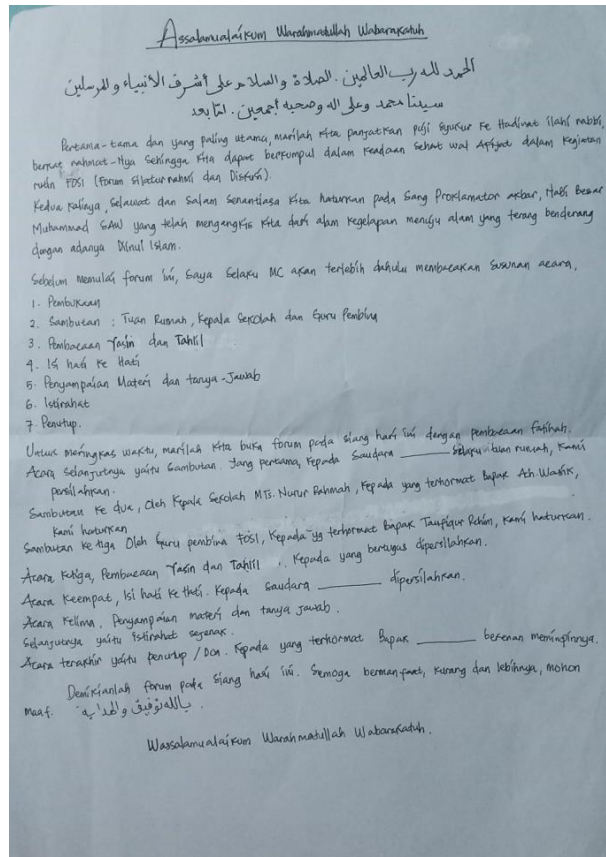 Assalamualaikum Warahmatullah Wabarakatuh
الحمد لله رب العالمين . الصلاة والسلام على أشرف الأنبياء والمرسلين
سيدنا محمد وعلى اله وصحبه أجمعين . امّا بعد
Pertama-tama dan yang paling utama, marilah kita panjatkan puji syukur ke Hadirat ilahi rabbi,
berkat rahmat-Nya sehingga kita dapat berkumpul dalam keadaan sehat wal Afiyat dalam kegiatan
rutin FOSI (Forum Silaturrahmi dan Diskusi).
Kedua kalinya, selawat dan salam senantiasa kita haturkan pada Sang Proklamator akbar, Nabi Besar
Muhammad SAW yang telah mengangkis kita dari alam kegelapan menuju alam yang terang benderang
dengan adanya Diinul Islam.
Sebelum memulai forum ini, saya selaku MC akan terlebih dahulu membacakan susunan acara.
1. Pembukaan
2. Sambutan : Tuan Rumah, Kepala Sekolah dan Guru Pembina
3. Pembacaan Yasin dan Tahlil
4. Isi hati ke Hati
5. Penyampaian Materi dan tanya-Jawab
6. Istirahat
7. Penutup.
Untuk meringkas waktu, marilah kita buka forum pada siang hari ini dengan pembacaan fatihah.
Acara selanjutnya yaitu Sambutan. Yang pertama, kepada Saudara ______ selaku tuan rumah, kami
persilahkan.
Sambutan ke dua, oleh Kepala Sekolah MTs. Nurur Rahmah, kepada yang terhormat Bapak Ah. Wasik,
kami haturkan
Sambutan ke tiga Oleh Guru pembina FOSI, kepada yg terhormat Bapak Taufiqur Rohim, kami haturkan.
Acara Ketiga, Pembacaan Yasin dan Tahlil . Kepada yang bertugas dipersilahkan.
Acara Keempat, Isi hati ke Hati. Kepada saudara ______ dipersilahkan.
Acara Kelima. Penyampaian materi dan tanya jawab.
Selanjutnya yaitu istirahat sejenak.
Acara terakhir yaitu penutup / Doa. Kepada yang terhormat Bapak ______ berkenan memimpinnya.
Demikianlah forum pada siang hari ini. Semoga bermanfaat, kurang dan lebihnya, mohon
maaf. بالله توفيق والهداية.
Wassalamualaikum Warahmatullah Wabarakatuh.